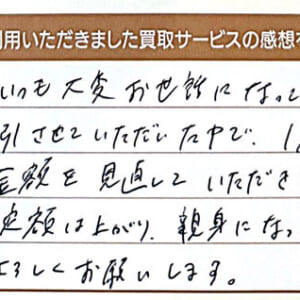 利用いただきました買取サービスの感想を
いつも大変お世話になって
引させていただいた中で、1
金額を見直していただき
定額は上がり、親身になっ
よろしくお願いします。